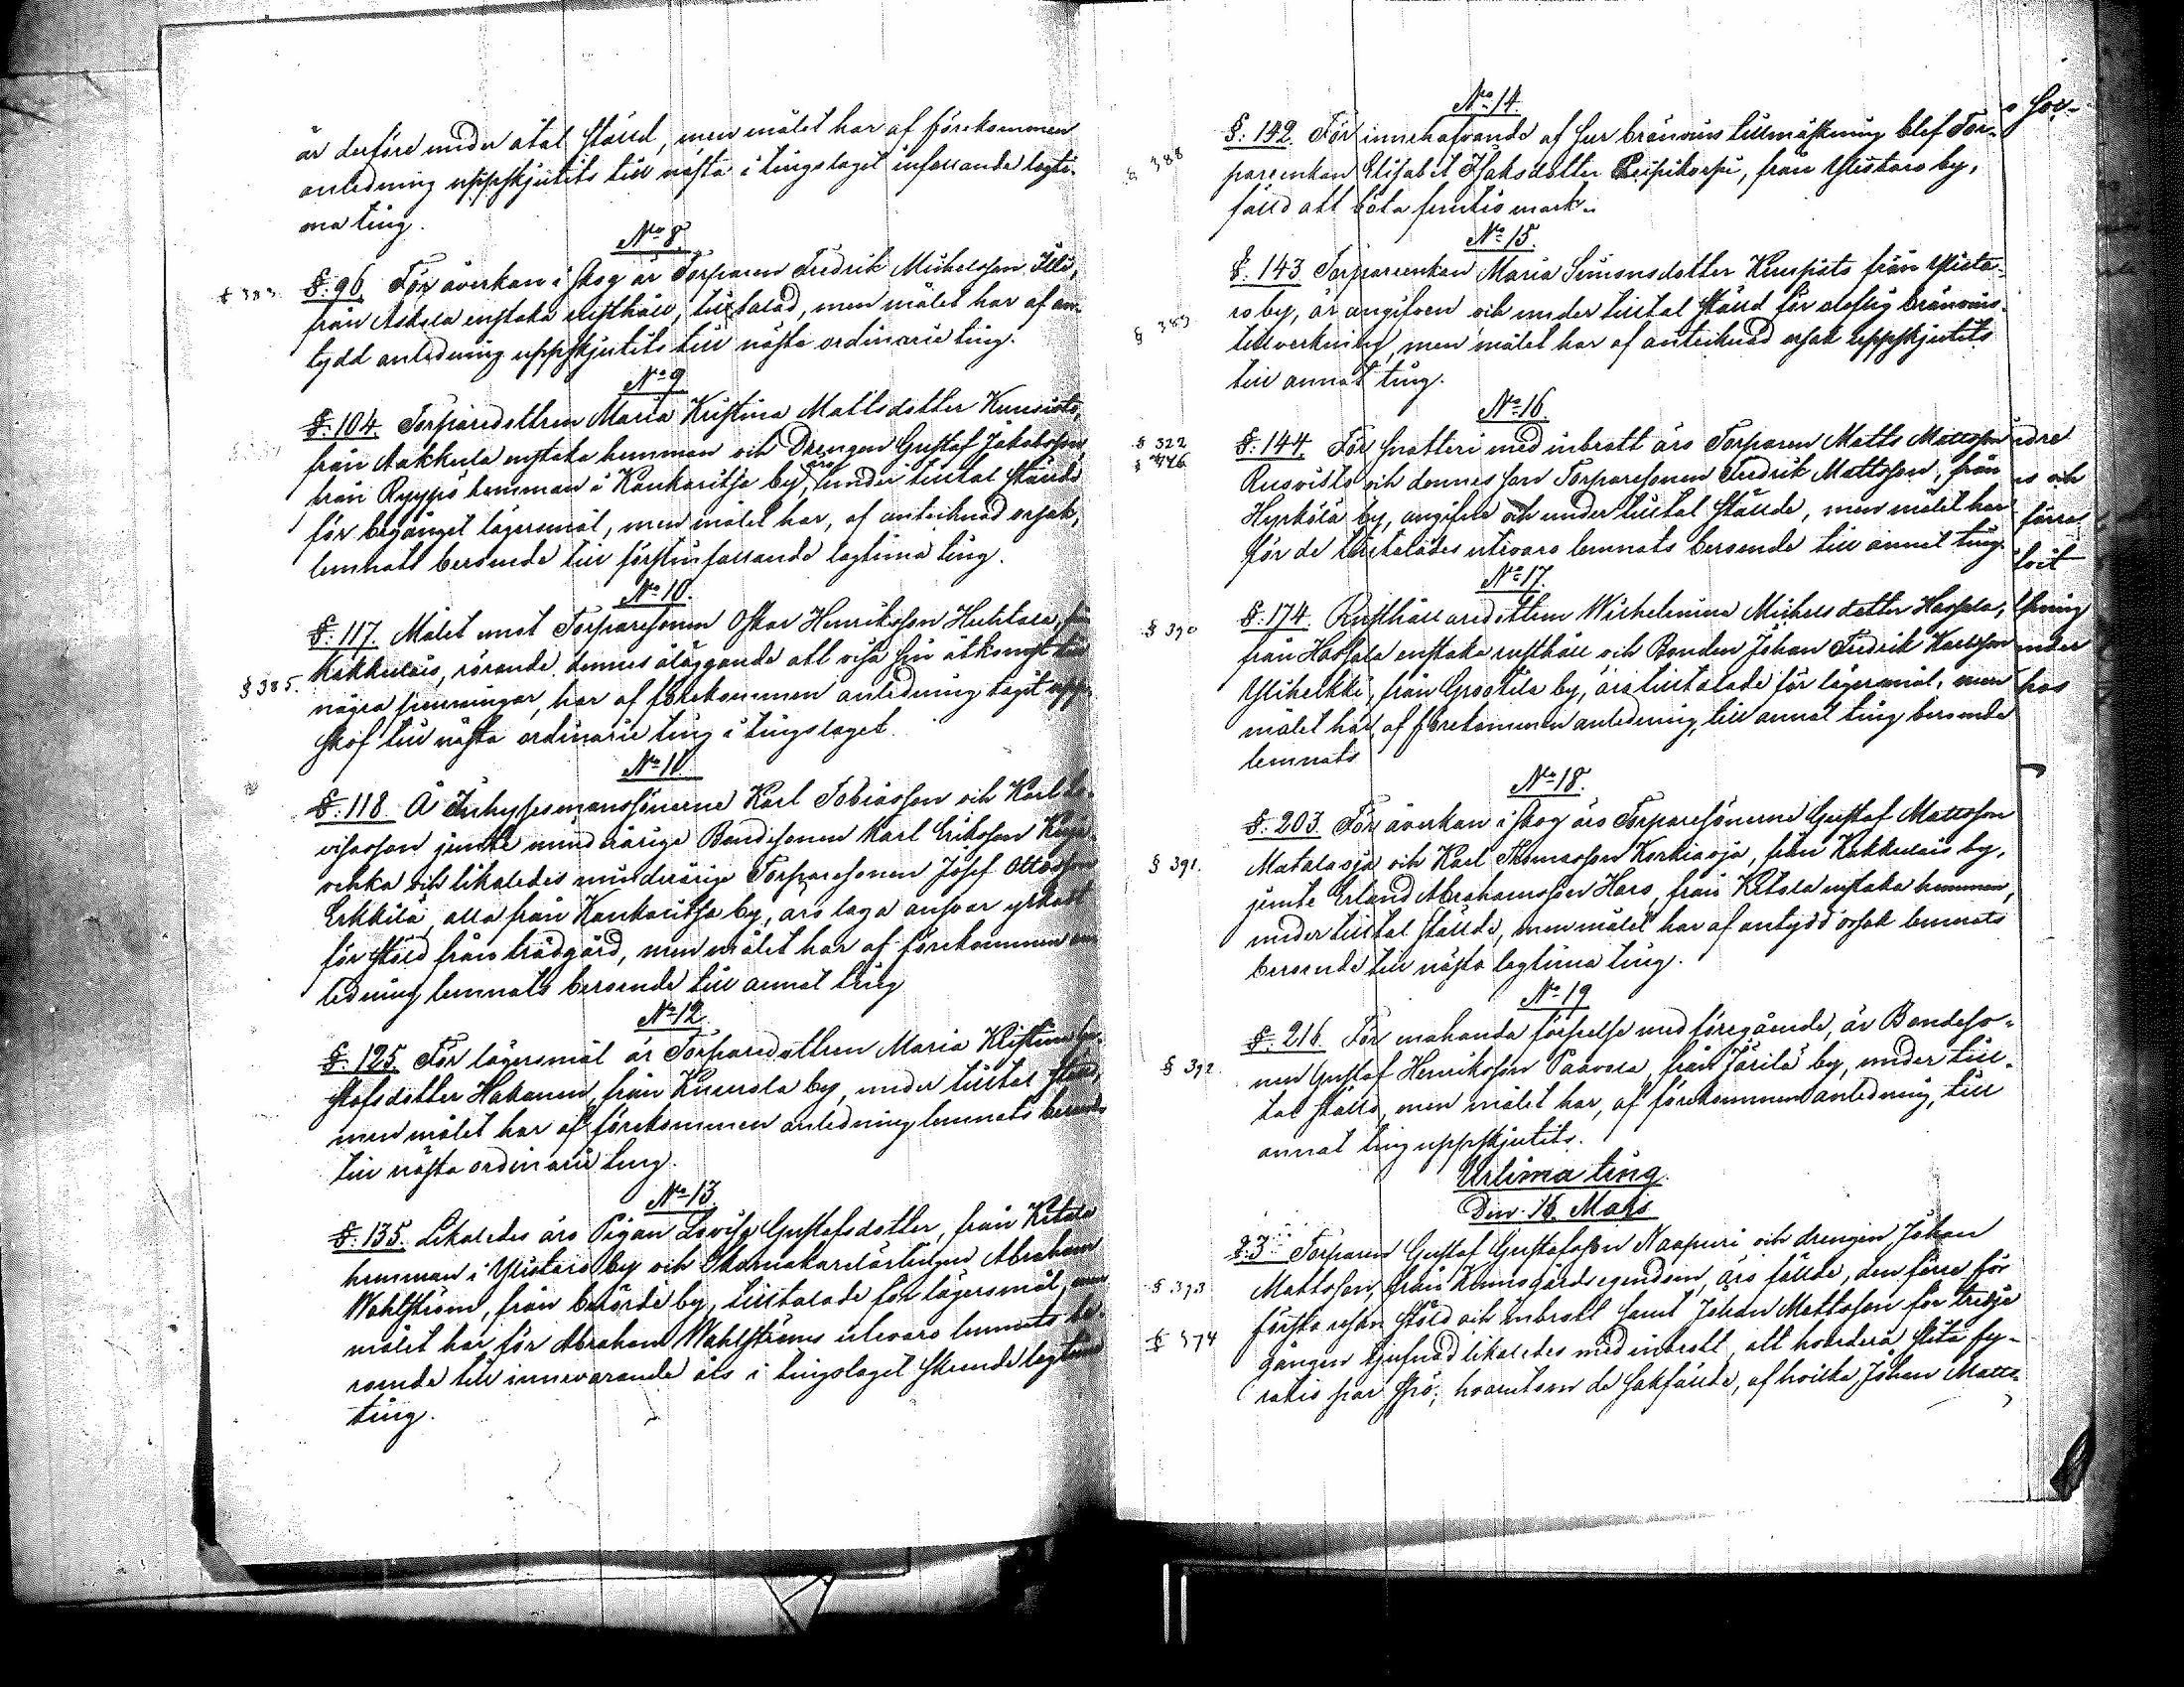 är derföre under åtal ställd, men målet har af förekommen
anledning uppskjutits till nästa i tingslaget infallande lagti-
ma ting.
No 8.
§ 383.
§. 96. För åverkan i skog är Torparen Fredrik Michelsson Illi,
från Askola enstaka rusthåll, tilltalad, men målet har af an-
tydd anledning uppskjutits till nästa ordinarie ting.
No 9
§. 104. Torparedottren Maria Kristina Mattsdotter Kuusisto,
från Aakkula enstaka hemman och Drengen Gustaf Jakobsson,
från Ryyppö hemman i Kankaritsa by, äro under tilltal ställde
för begånget lägersmål, men målet har, af antecknad orsak,
lemnats beroende till förstinfallande lagtima ting.
No 10.
§. 117. Målet emot Torparesonen Oskar Henriksson Huhtala, från
Kakkulais, rörande dennes åläggande att visa sin åtkomst till
§ 385.
några penningar, har af förekommen anledning tagit upp-
skof till nästa ordinarie ting i tingslaget.
No 11.
§. 118 Å Inhysesmanssönerne Karl Tobiasson och Karl Lo-
visasson jemte minderårige Bondesonen Karl Eriksson
och likaledes minderårige Torparesonen Josef Ottosson
Erkkilä, alla från Kankaritsa by, äro laga ansvar yrkadt
för stöld från trädgård, men målet har af förekommen an-
ledning lemnats beroende till annat ting
No 12.
§. 125. För lägersmål är Torparedottren Maria Kristina Gu-
stafsdotter Hakanen, från Kuurola by, under tilltal ställd,
men målet har af förekommen anledning lemnats beroende
till nästa ordinarie ting.
No 13.
§. 135. Likaledes äro Pigan Lovisa Gustafsdotter, från Kitala
hemman i Ylistaro by och Skomakarelärlingen Abraham
Wahlström, från by, tilltalade för lägersmål, men
målet har för Abraham Wahlströms utevaro lemnats be-
roende till innevarande års i tingslaget skeende lagtima
ting.
No 14.
§ 388
§. 142. För innehafvande af sur bränvins tillmäskning blef Tor-
parenkan Elisabet Isaksdotter, från Ylistaro by,
fälld att böta femtio mark.
No 15.
§. 143. Torpareenkan Maria Simonsdotter Kuusisto från Ylista-
ro by, är angifven och under tilltal ställd för olaflig bränvins-
§ 389
tillverkning, men målet har af antecknad orsak uppskjutits
till annat ting.
No 16.
§ 322
§ 446
§. 144. För snatteri med inbrott äro Torparen Matts Mattsson
Rusvisto och dennes son Torparesonen Fredrik Mattsson, från
Hyrkölä by, angifne och under tilltal ställde, men målet har
för de tilltalades utevaro lemnats beroende till annat ting.
No 17.
§ 390
§. 174. Rusthållaredottren Wilhelmina Michelsdotter Hassala,
från Hassala enstaka rusthåll och Bonden Johan Fredrik Karlsson
Ylihelkki, från Grootila by, äro tilltalade för lägersmål, men
målet har, af förekommen anledning, till annat ting beroende
lemnats
No 18.
§. 203. För åverkan i skog äro Torparesönerne Gustaf Mattsson
§ 391.
Mataraoja och Karl Thomasson Korkiaoja, från Kakkulais by,
jemte Erland Abrahamsson Haro, från Kitola enstaka hemman,
under tilltal ställde, men målet har af antydd orsak lemnats
beroende till nästa lagtima ting.
No 19
§. 216. För enahanda förseelse med föregående, är Bondeso-
§ 392
nen Gustaf Henriksson Paavola, från Järilä by, under till-
tal ställd, men målet har, af förekommen anledning, till
annat ting uppskjutits.
Urtima ting.
Den 15. Mars
§. 3 Torparen Gustaf Gustafsson Naapuri och drengen Johan
§ 393
Mattsson, från Kumogårds egendom, äro fällde, den förre för
första resan stöld och inbrott samt Johan Mattsson för tredje
§ 374
gången tjufnad likaledes med inbrott, att hvardera slita fy-
ratio par spö; hvarutom de sakfällde, af hvilka Johan Matts-